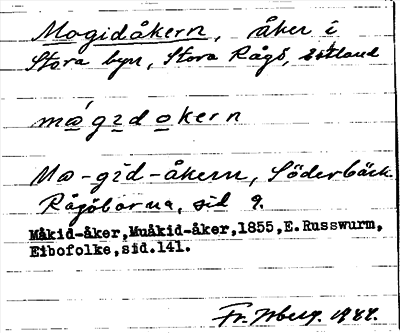 Mogidåkern, åker i
Stora byn, Stora Rågö, Estland
má̱gi̱do̱kern
Ma-gīd-åkern, Söderbäck.
Rågöborna, sid 9.
Måkid-åker,Muåkid-åker,1855,E.Russwurm,
Eibofolke,sid.141.